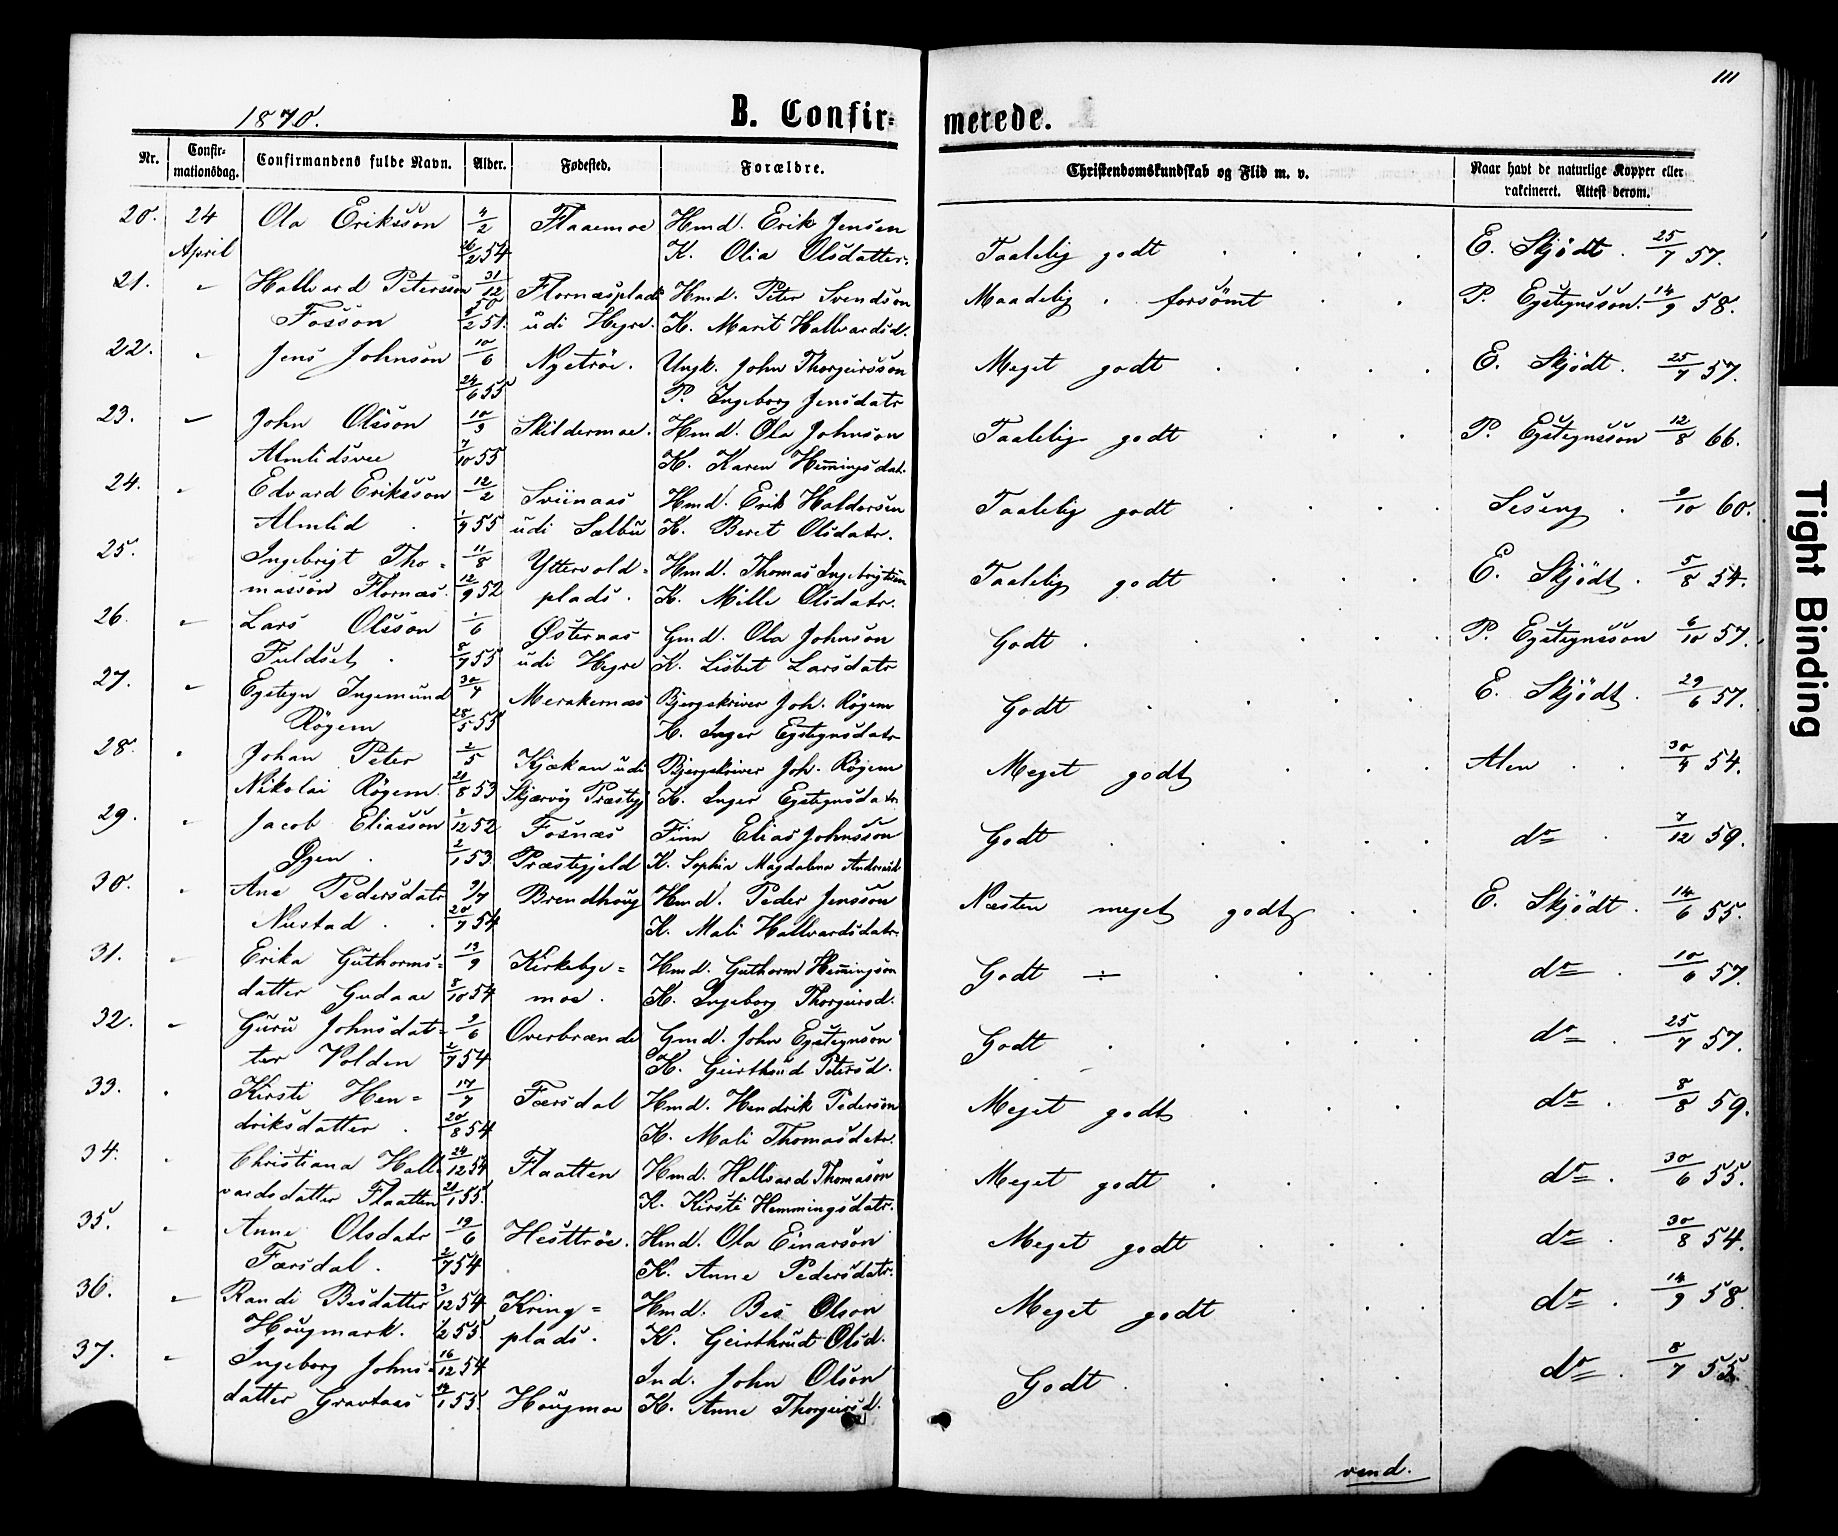 111
1870.
B. Confirmerede.
Nr. Confirmationsdag. Confirmandens fulde Navn. Alder. Fødested. Forældre. Christendomskundskab og Flid m. v. Naar havt de naturlige Kopper eller vakcineret. Attest derom.
20. 24 Ola Eriksson 4/2 Flaaemoe Hmd. Erik Jensen
April 26/2 54 K. Olia Olsdatter.
Taalelig godt . . . . E. Skjødt . 25/7 57.
21. " Hallvard Peterson 31/12 50 Flornæsplads Hmd. Peter Svendson
Fosson 5/2 51. udi Hegre. K. Marit Hallvardsd.
Maadelig . forsömt . . P. Egstegnsson. 14/9 58.
22. " Jens Johnson 10/6 Nyetröe. Ungk. John Thorgeirsson
24/6 55 P. Ingeborg Jensdatr
Meget godt . . . . E. Skjødt. 25/7 57.
23. " John Olsson 10/3 Skildermoe. Hmd. Ola Johnson
Almlidsvee 7/10 55 K. Karen Hemingsdat.
Taalelig godt . . . P. Egstegnsson 12/8 66.
24. " Edvard Eriksson 12/2 Sviinaas Hmd. Erik Haldorsen
Almlid . 1/4 55 udi Sælbu K. Beret Olsdatr.
Taalelig godt . . . . Seseng . 9/10 60.
25. Ingebrigt Tho= 11/8 Yttervold= Hmd. Thomas Ingebrigtson
masson Flornæs 12/9 52 plads. K. Mille Olsdatr.
Taalelig godt . . . E. Skjødt. 5/8 54.
26. " Lars Olsson 1/6 Østernas Gmd. Ola Johnson
Fuldset . 8/7 55 udi Hegre K. Lisbet Larsdatr
Godt . . . . . P. Egstegnsson 6/10 57.
27. " Egstegn Ingemund 30/4 Merakernæs Bjergskriver Joh. Rögem
Rögem 28/5 55 K. Inger Egstegnsdatr
Godt . . . . E. Skjødt. 29/6 57.
28. " Johan Peter 2/5 Kjækan udi Bjergskriver Joh. Rögem
Nikolai Rögem. 21/8 53 Skjærvög Præstgj K. Inger Egstegnsdatr
Meget godt . . . Alen . . 30/4 54.
29. " Jacob Eliasson 1/12 52 Fosnæs Finn Elias Johnsson
Øyen . 2/1 53. Præstegjeld K. Sophia Magdalena Andersd
Godt . . . . . do . 7/12 59.
30. " Ane Pedersdatr 9/7 Brendhoug Hmd. Peder Jensson
Nustad . . 20/7 54 K. Mali Hallvardsdatr.
Næsten meget godt . . E. Skjødt . 14/6 55.
31. " Erika Guthorms= 13/9 Kirkebye= Hmd. Guthorm Hemingson
datter Gudaae 8/10 54 moe. K. Ingeborg Thorgeirsd.
Godt ÷ . . . do 10/6 57.
32. " Guru Johnsdat= 9/6 Overbrænde Gmd. John Egstegnson
ter Volden 2/7 54 K. Geirthrud Petersd.
Godt . . . . . do . 25/7 57.
33. " Kirsti Hen= 17/7 Færsdal Hmd. Hendrik Pederson
driksdatter . 20/8 54 K. Mali Thomasdatr.
Meget godt . . . do . 8/8 59.
34. " Christiana Hall= 24/12 54 Flaatten Hmd. Hallvard Thomason
vardsdatter Flaatten 21/1 55. K. Kirsti Hemmingsdatr.
Meget godt . . . do . 30/6 55.
35. " Anne Olsdatr 19/6 Hesttröe. Hmd. Ola Einarson
Færsdal. 2/7 54 K. Anne Pedersdatr.
Meget godt . . . do . 30/8 54.
36. " Randi Besdatter 3/12 54 Kring= Hmd. Bes Olson
Hougmark. 1/2 55. plads. K. Geirthrud Olsd.
Meget godt . . . do . 14/9 58.
37. " Ingeborg Johns= 16/12 54 Ind. John Olson
datter Gravtaas 14/1 55. Hougmoe K. Anne Thorgeirsd.
Godt . . . . do . 8/7 55.
vend.
Tight Binding